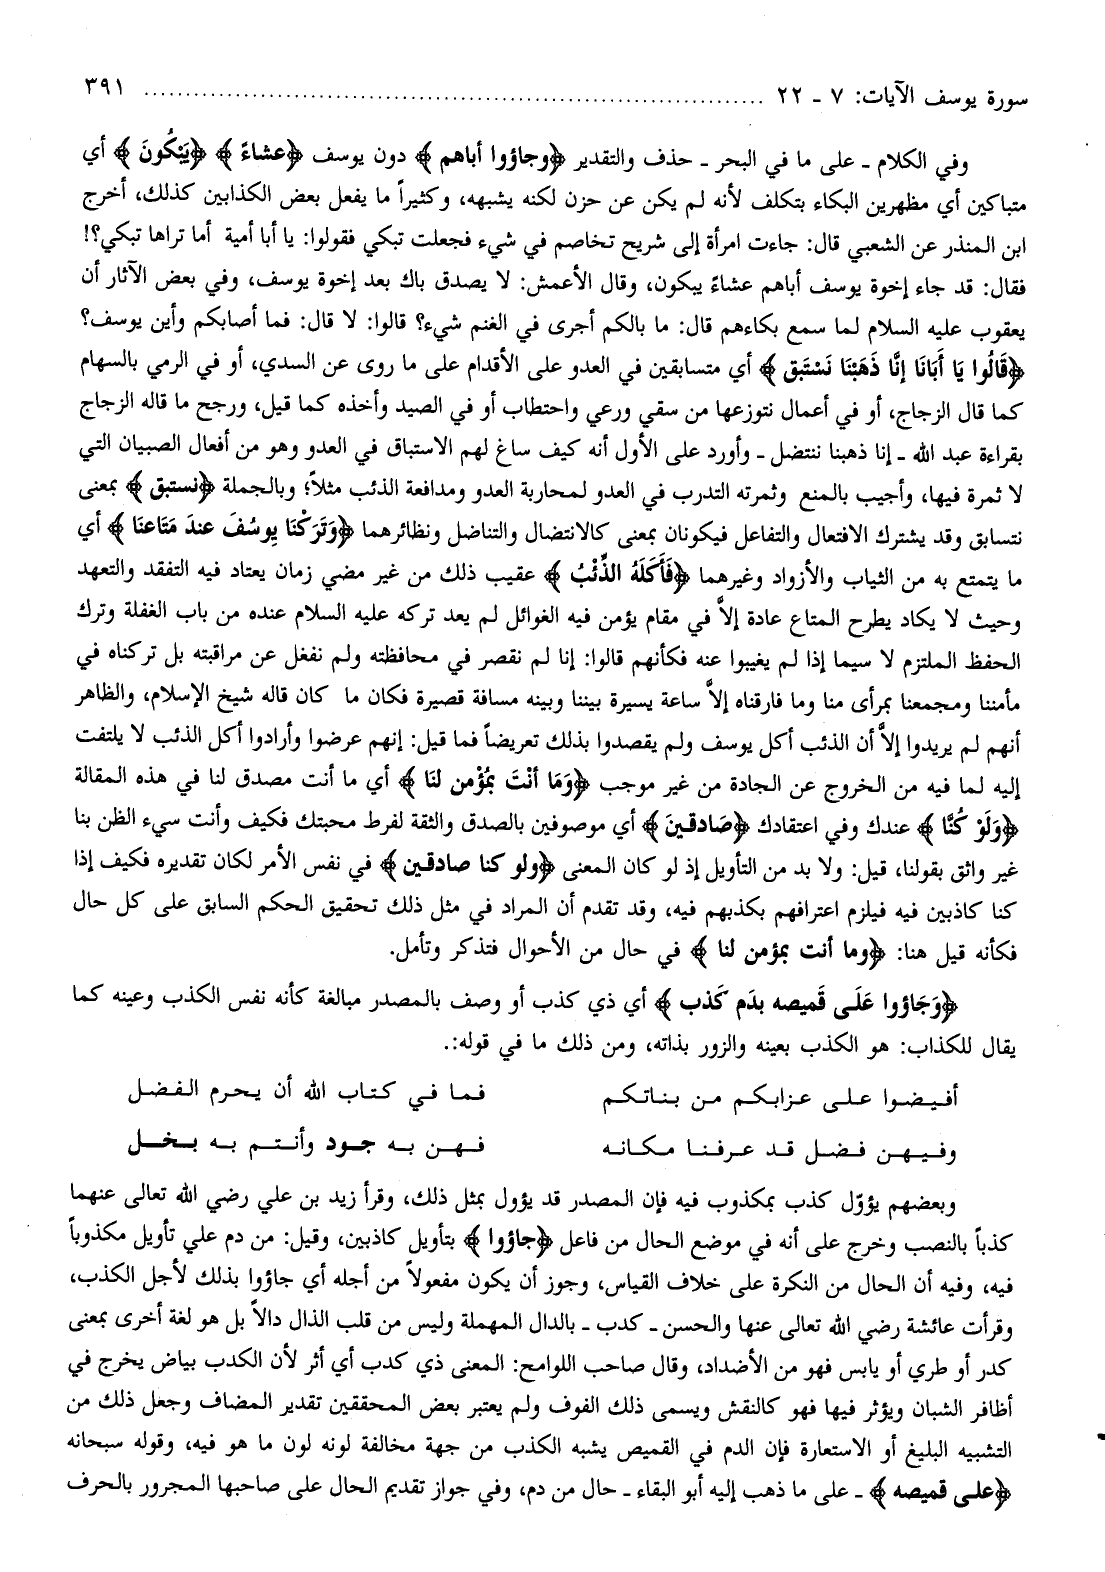 سورة يوسف الآيات: ٧ ـ ٢٢ ........................................................................ ٣٩١
وفي الكلام ـ على ما في البحر ـ حذف والتقدير ﴿وجاؤوا أباهم﴾ دون يوسف ﴿عشاءً﴾ ﴿يَبْكُونَ﴾ أي
متباكين أي مظهرين البكاء بتكلف لأنه لم يكن عن حزن لكنه يشبهه، وكثيراً ما يفعل بعض الكذابين كذلك، أخرج
ابن المنذر عن الشعبي قال: جاءت امرأة إلى شريح تخاصم في شيء فجعلت تبكي فقولوا: يا أبا أمية أما تراها تبكي؟!
فقال: قد جاء إخوة يوسف أباهم عشاءً يبكون، وقال الأعمش: لا يصدق باك بعد إخوة يوسف، وفي بعض الآثار أن
يعقوب عليه السلام لما سمع بكاءهم قال: ما بالكم أجرى في الغنم شيء؟ قالوا: لا قال: فما أصابكم وأين يوسف؟
﴿قَالُوا يَا أَبَانَا إِنَّا ذَهَبْنَا نَسْتَبق﴾ أي متسابقين في العدو على الأقدام على ما روى عن السدي، أو في الرمي بالسهام
كما قال الزجاج، أو في أعمال نتوزعها من سقي ورعي واحتطاب أو في الصيد وأخذه كما قيل، ورجح ما قاله الزجاج
بقراءة عبد الله ـ إنا ذهبنا ننتضل ـ وأورد على الأول أنه كيف ساغ لهم الاستباق في العدو وهو من أفعال الصبيان التي
لا ثمرة فيها، وأجيب بالمنع وثمرته التدرب في العدو لمحاربة العدو ومدافعة الذئب مثلاً؛ وبالجملة ﴿نستبق﴾ بمعنى
نتسابق وقد يشترك الافتعال والتفاعل فيكونان بمعنى كالانتضال والتناضل ونظائرهما ﴿وَتَرَكْنَا يوسُفَ عندَ مَتَاعنَا﴾ أي
ما يتمتع به من الثياب والأزواد وغيرهما ﴿فَأَكَلَهُ الذِّئْبُ﴾ عقيب ذلك من غير مضي زمان يعتاد فيه التفقد والتعهد
وحيث لا يكاد يطرح المتاع عادة إلاَّ في مقام يؤمن فيه الغوائل لم يعد تركه عليه السلام عنده من باب الغفلة وترك
الحفظ الملتزم لا سيما إذا لم يغيبوا عنه فكأنهم قالوا: إنا لم نقصر في محافظته ولم نغفل عن مراقبته بل تركناه في
مأمننا ومجمعنا بمرأى منا وما فارقناه إلاَّ ساعة يسيرة بيننا وبينه مسافة قصيرة فكان ما كان قاله شيخ الإسلام، والظاهر
أنهم لم يريدوا إلاَّ أن الذئب أكل يوسف ولم يقصدوا بذلك تعريضاً فما قيل: إنهم عرضوا وأرادوا أكل الذئب لا يلتفت
إليه لما فيه من الخروج عن الجادة من غير موجب ﴿وَمَا أَنْتَ بمُؤْمن لنَا﴾ أي ما أنت مصدق لنا في هذه المقالة
﴿وَلَوْ كُنَّا﴾ عندك وفي اعتقادك ﴿صَادقينَ﴾ أي موصوفين بالصدق والثقة لفرط محبتك فكيف وأنت سيء الظن بنا
غير واثق بقولنا، قيل: ولا بد من التأويل إذ لو كان المعنى ﴿ولو كنا صادقين﴾ في نفس الأمر لكان تقديره فكيف إذا
كنا كاذبين فيه فيلزم اعترافهم بكذبهم فيه، وقد تقدم أن المراد في مثل ذلك تحقيق الحكم السابق على كل حال
فكأنه قيل هنا: ﴿وما أنت بمؤمن لنا﴾ في حال من الأحوال فتذكر وتأمل.
﴿وَجَاؤوا عَلَى قَميصه بدَم كَذب﴾ أي ذي كذب أو وصف بالمصدر مبالغة كأنه نفس الكذب وعينه كما
يقال للكذاب: هو الكذب بعينه والزور بذاته، ومن ذلك ما في قوله:.
أفيضوا على عزابكم من بناتكم فما في كتاب الله أن يحرم الفضل
وفيهن فضل قد عرفنا مكانه فهن به جود وأنتم به بخل
وبعضهم يؤوّل كذب بمكذوب فيه فإن المصدر قد يؤول بمثل ذلك، وقرأ زيد بن علي رضي الله تعالى عنهما
كذباً بالنصب وخرج على أنه في موضع الحال من فاعل ﴿جاؤوا﴾ بتأويل كاذبين، وقيل: من دم علي تأويل مكذوباً
فيه، وفيه أن الحال من النكرة على خلاف القياس، وجوز أن يكون مفعولاً من أجله أي جاؤوا بذلك لأجل الكذب،
وقرأت عائشة رضي الله تعالى عنها والحسن ـ كدب ـ بالدال المهملة وليس من قلب الذال دالاً بل هو لغة أخرى بمعنى
كدر أو طري أو يابس فهو من الأضداد، وقال صاحب اللوامح: المعنى ذي كدب أي أثر لأن الكدب بياض يخرج في
أظافر الشبان ويؤثر فيها فهو كالنقش ويسمى ذلك الفوف ولم يعتبر بعض المحققين تقدير المضاف وجعل ذلك من
التشبيه البليغ أو الاستعارة فإن الدم في القميص يشبه الكذب من جهة مخالفة لونه لون ما هو فيه، وقوله سبحانه
﴿على قميصه﴾ ـ على ما ذهب إليه أبو البقاء ـ حال من دم، وفي جواز تقديم الحال على صاحبها المجرور بالحرف